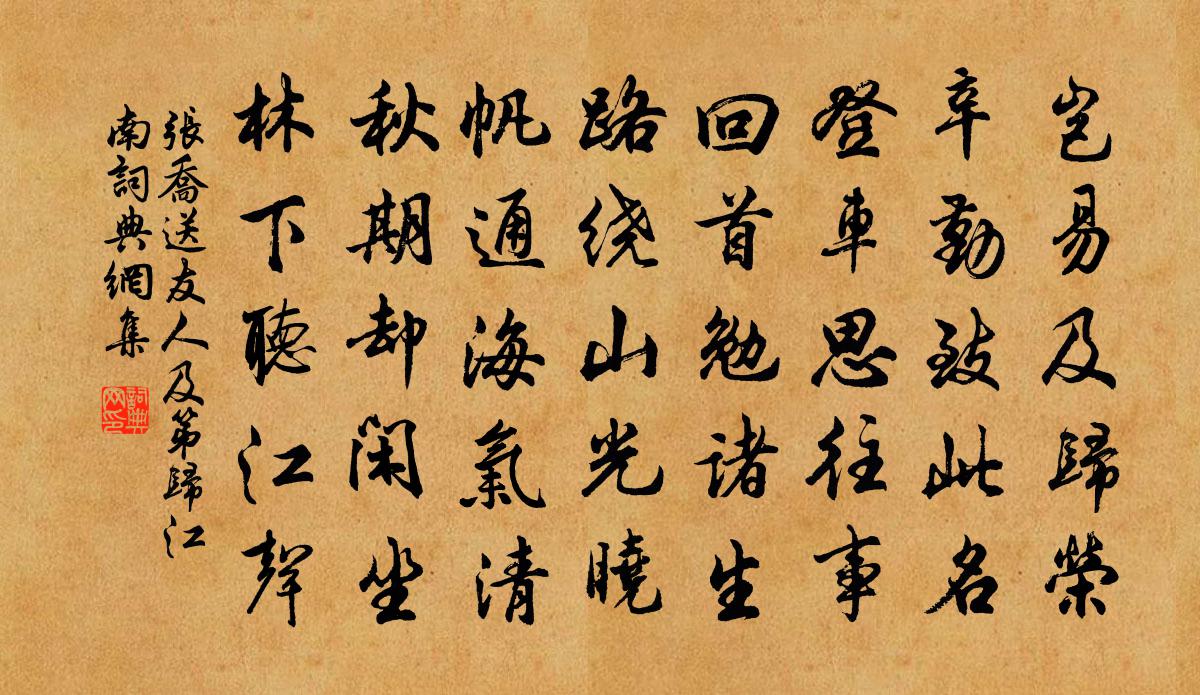 岂易及歸榮
辛勤致此名
登車思往事
回首勉诸生
路绕山光曉
帆通海氣清
秋期却閑坐
林下聽江聲
張喬送友人及第歸江
南詞典網集
詞典
网印